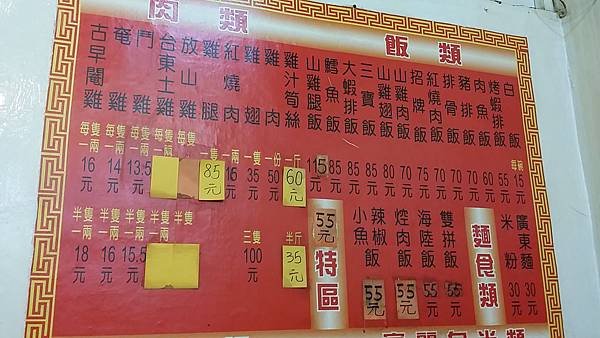 肉類
飯類
白飯 每碗 15元
烤蝦排飯 55元
肉魚飯 60元
豬排飯 60元
排骨飯 60元
紅燒肉飯 70元
招牌飯 75元
山雞肉飯 70元
山雞翅飯 80元
三寶飯 85元
大蝦排飯 85元
鱈魚飯 85元
山雞腿飯 115元
雞汁筍絲 一斤 60元 半斤 35元
雞肉 50元
雞翅 35元 三隻 100元
紅燒肉 一兩 15元
雞腿 一隻 85元
放山雞 每隻一兩 半隻一兩
台東土雞 每隻一兩 半隻一兩
鬥雞 每隻一兩 13.5元 半隻一兩 15.5元
奄雞 每隻一兩 14元 半隻一兩 16元
古早閹雞 每隻一兩 16元 半隻一兩 18元
麵食類
廣東麵 30元
米粉 30元
55元特區
雙拼飯 55元
海陸飯 55元
焢肉飯 55元
辣椒小魚飯 55元